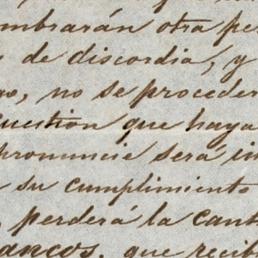 mbrarán otra per
de discordia, y
no se proceder
uestion que haya
pronuncie será in
su cumplimiento
perderá la cant
ancos, que recib